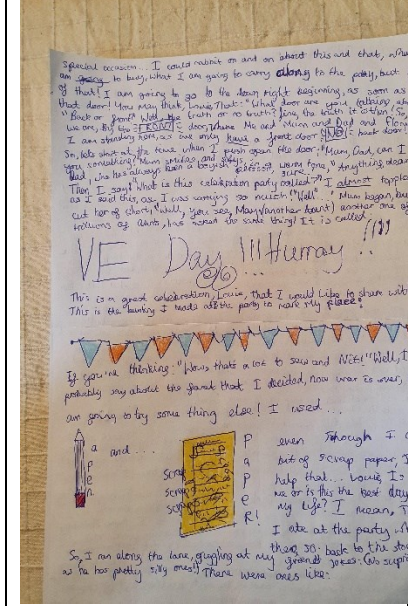 special occasion... I could rabbit on and on about this and that, wha
am going to buy, what I am going to carry along to the party, but
of that! I am going to go to the down right beginning, as soon as
that door! You may think, Louie, That: "What door are you talking abo
"Back or front? Well the truth or no truth? Fine, the truth it is then! So,
we are, the big FRONT door, where Me and Mum and Dad and
I am standing here, as we only have a front door NO back door!
So, lets start at the time when I push open the door. "Mum, Dad, can I
you something? Mum smiles, and says, in a warm tone, "Anything dear
Dad, who has always been a person, sure.
Then I say "What is this celebration party called?" I almost toppled
as I said this, as I was carrying so much! "Well" Mum began, bu
cut her of shortly, "well, you see, Mary (another Aunt) another one of
trillions of Aunts, has asked the same thing! It is called
VE Day!!! Hurray..!!!!
This is a great celebration, Louie, that I would like to share with
This is the bunting I made at the party to mark my place!
If you're thinking: "Wow, thats a lot to sew and Knit!" "Well, I
probably say about the fact that I decided, now war is over,
am going to try some thing else! I used...
a pen
and ...
Scrap
Scrap
Scrap
PAPER!
even Though I
but of scrap paper, I
help that... Louie, Is
me or is this the best day
My life? I mean, T
I ate at the party wh
there so back to the sto
So, I am along the lane, giggling at my grand jokes: (No supri
as he has pretty silly ones!) There were ones like: